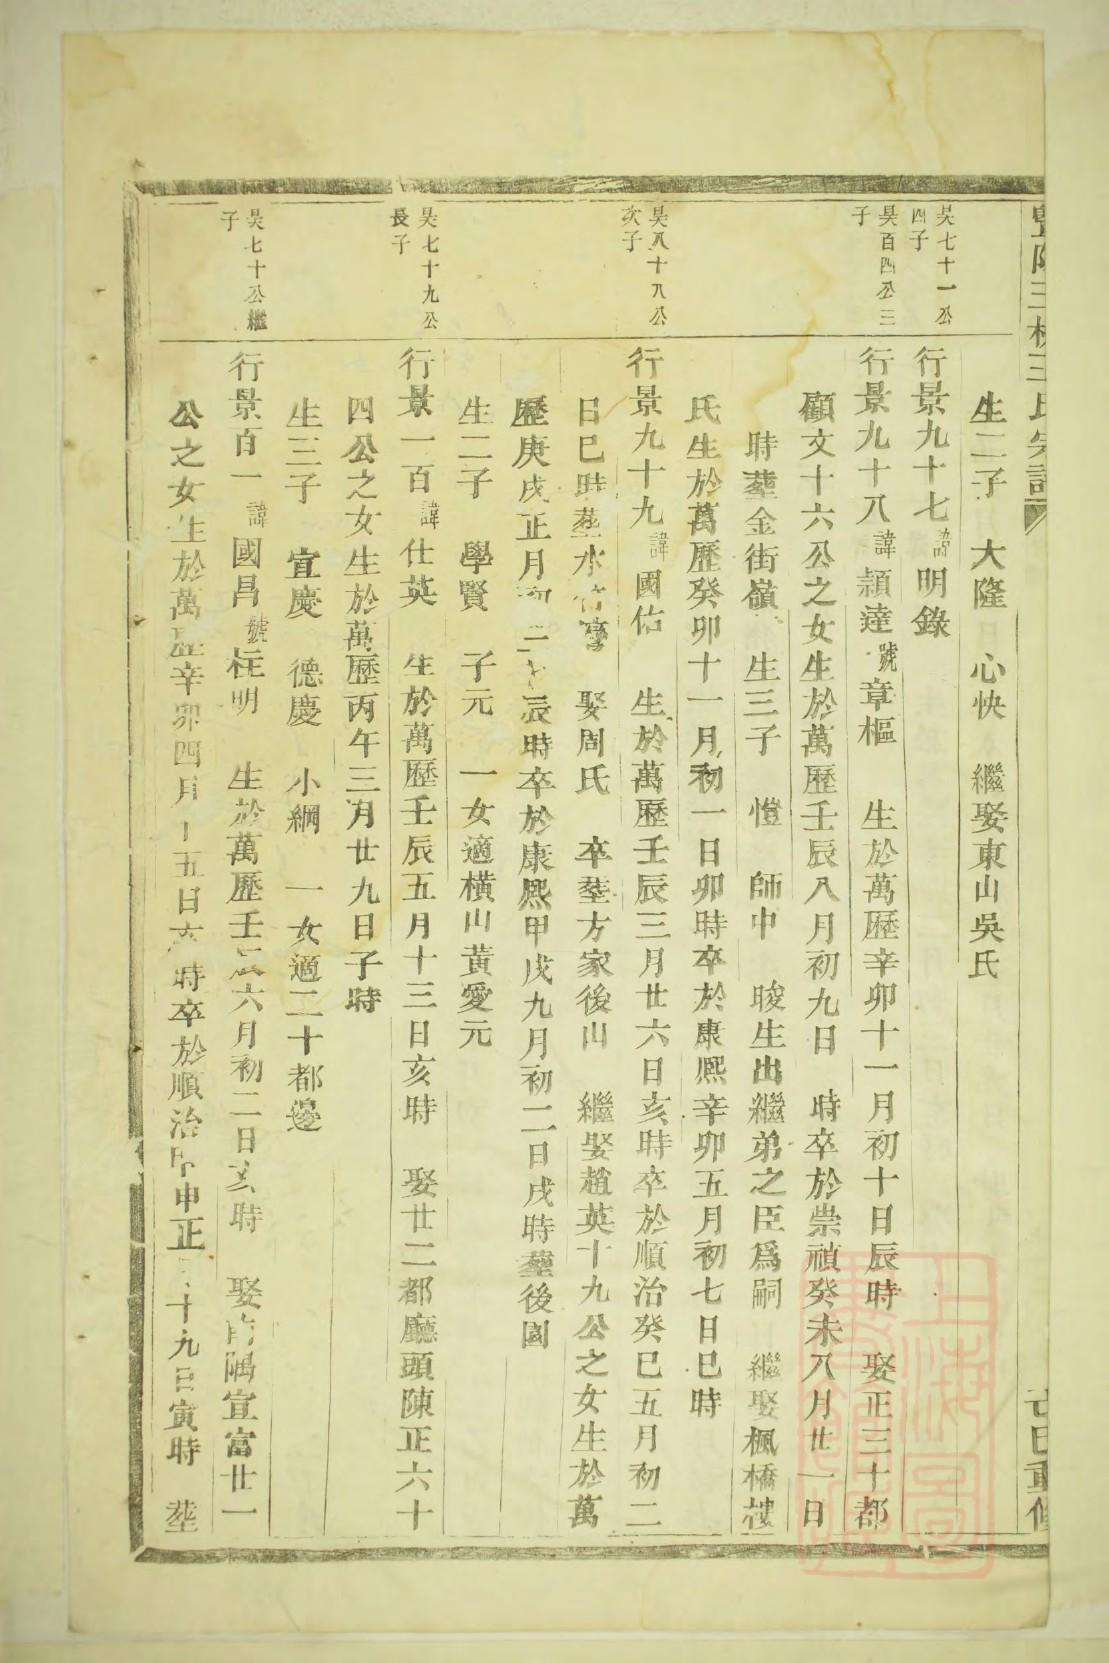 生二子　大隆　心快　繼娶東山吳氏
昊七十一公
四子
行景九十七諱明錄
昊百四公三
子
行景九十八諱頴達號章樞　生於萬歷辛卯十一月初十日辰時　娶正三十都
顧文十六公之女生於萬歷壬辰八月初九日　時卒於崇禎癸未八月廿一日
時塟金街嶺　生三子　愷　師中　晙生出繼弟之臣爲嗣　繼娶楓橋樓
氏生於萬歷癸卯十一月初一日卯時卒於康熙辛卯五月初七日巳時
昊八十八公
次子
行景九十九諱國佑　生於萬歷壬辰三月廿六日亥時卒於順治癸巳五月初二
日巳時塟水竹塆　娶周氏　卒塟方家後山　繼娶趙英十九公之女生於萬
歷庚戌正月初二辰時卒於康熙甲戌九月初二日戌時塟後園
生二子　學賢　子元　一女適橫山黃愛元
昊七十九公
長子
行景一百諱仕英　生於萬歷壬辰五月十三日亥時　娶廿二都廳頭陳正六十
四公之女生於萬歷丙午三月廿九日子時
生三子　宜慶　德慶　小綱　一女適二十都邊
昊七十公繼
子
行景百一諱國昌號桂明　生於萬歷壬辰六月初二日亥時　娶南隅宣富廿一
公之女生於萬歷辛卯四月十五日亥時卒於順治甲申正月十九日寅時　塟